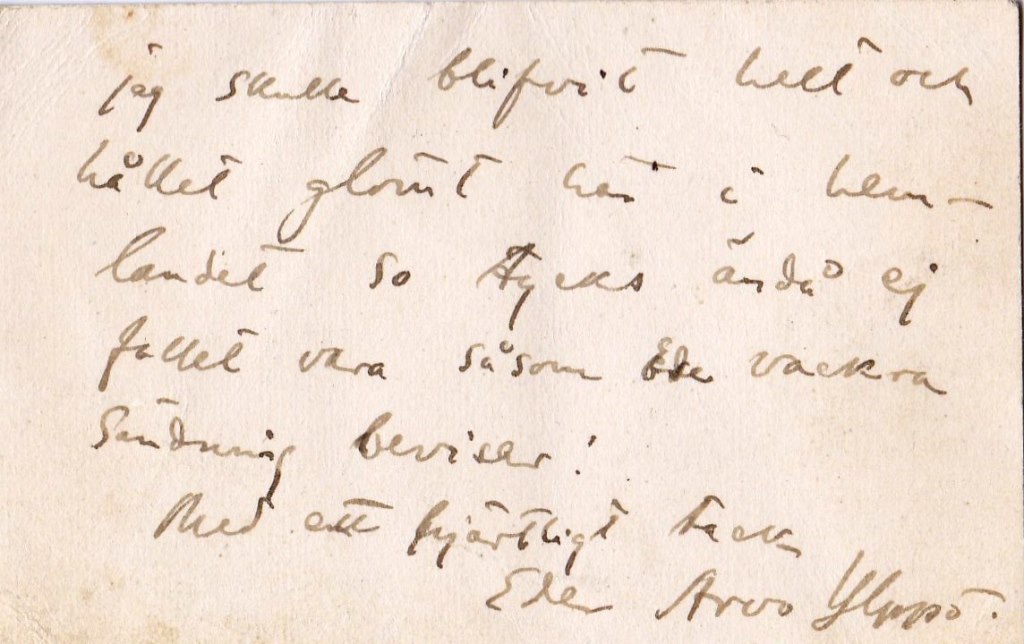 jag skulle blifvit helt och
hållet glömt här i hem-
landet so tycks ändå ej
fallet vara såsom Eder vackra
sändning beviser!
Med ett hjärtligt tack
Eder Arvo Ylppö.